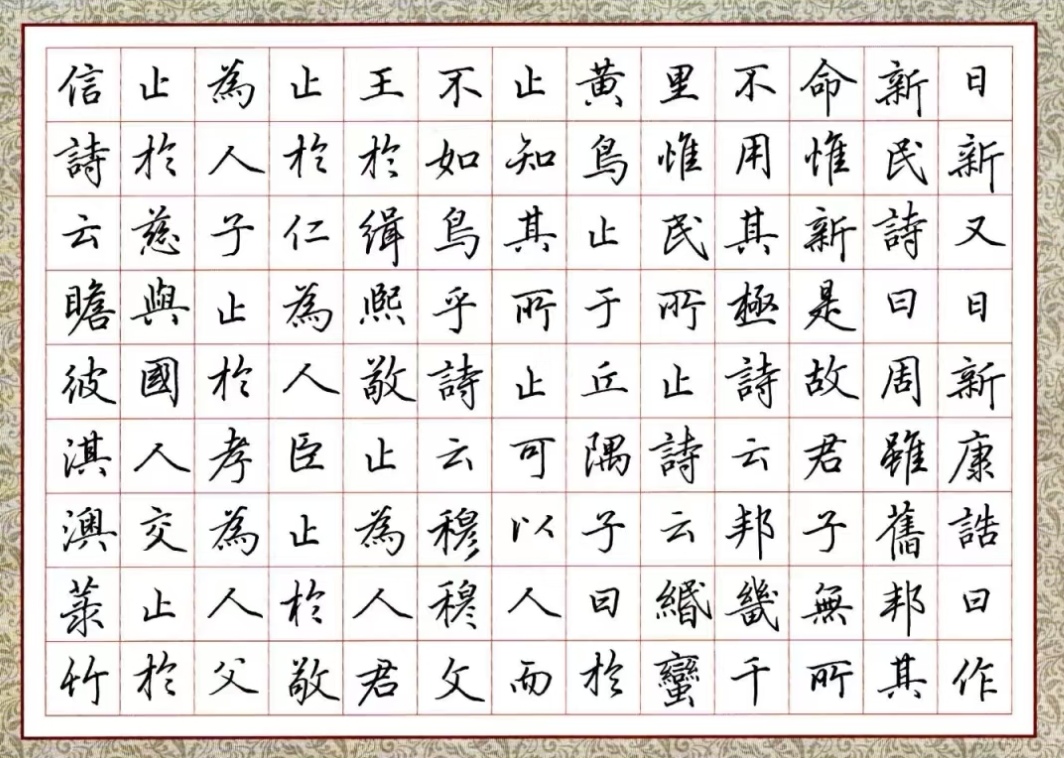 日新又日新康誥曰作
新民詩曰周雖舊邦其
命惟新是故君子無所
不用其極詩云邦畿千
里惟民所止詩云緡蠻
黄鳥止于丘隅子曰於
止知其所止可以人而
不如鳥乎詩云穆穆文
王於緝熙敬止為人君
止於仁為人臣止於敬
為人子止於孝為人父
止於慈與國人交止於
信詩云瞻彼淇澳菉竹